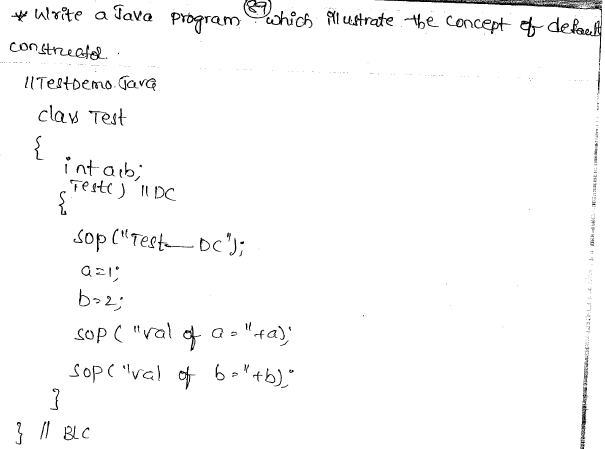 * Write a Java program (89) which illustrate the concept of default
constructor.
//TestDemo.Java
class Test
{
int a,b;
Test() // DC
{
sop("Test—DC");
a=1;
b=2;
sop("val of a="+a);
sop("val of b="+b);
}
} // BLC